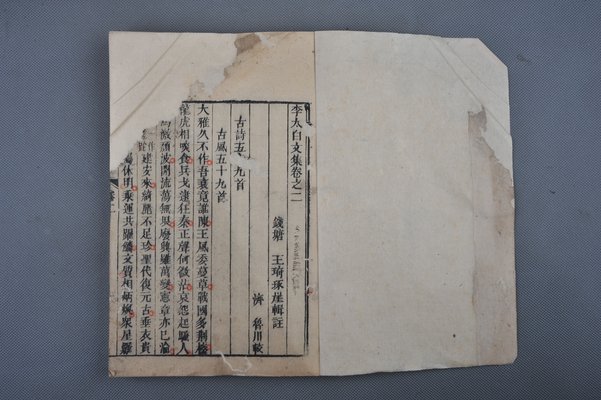 李太白文集卷之二
錢塘 王琦琢崖輯註
濟 魯川較
古詩五 九首
古風五十九首
大雅久不作吾衰竟誰陳王風委蔓草戰國多荊榛
龍虎相啖食兵戈逮狂秦正聲何微茫哀怨起騷人
馬激頹波開流蕩無垠廢興雖萬變憲章亦已淪
建安來綺麗不足珍聖代復元古垂衣貴
屬休明乘運共躍鱗文質相炳煥衆星羅